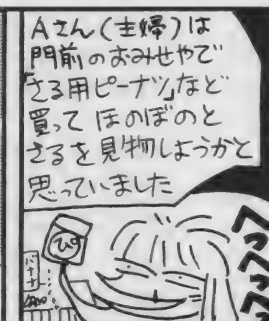 Aさん(主婦)は
門前のおみせやで
「さる用ピーナツ」など
買って ほのぼのと
さるを見物しようかと
思っていました
ぴ
バナナ